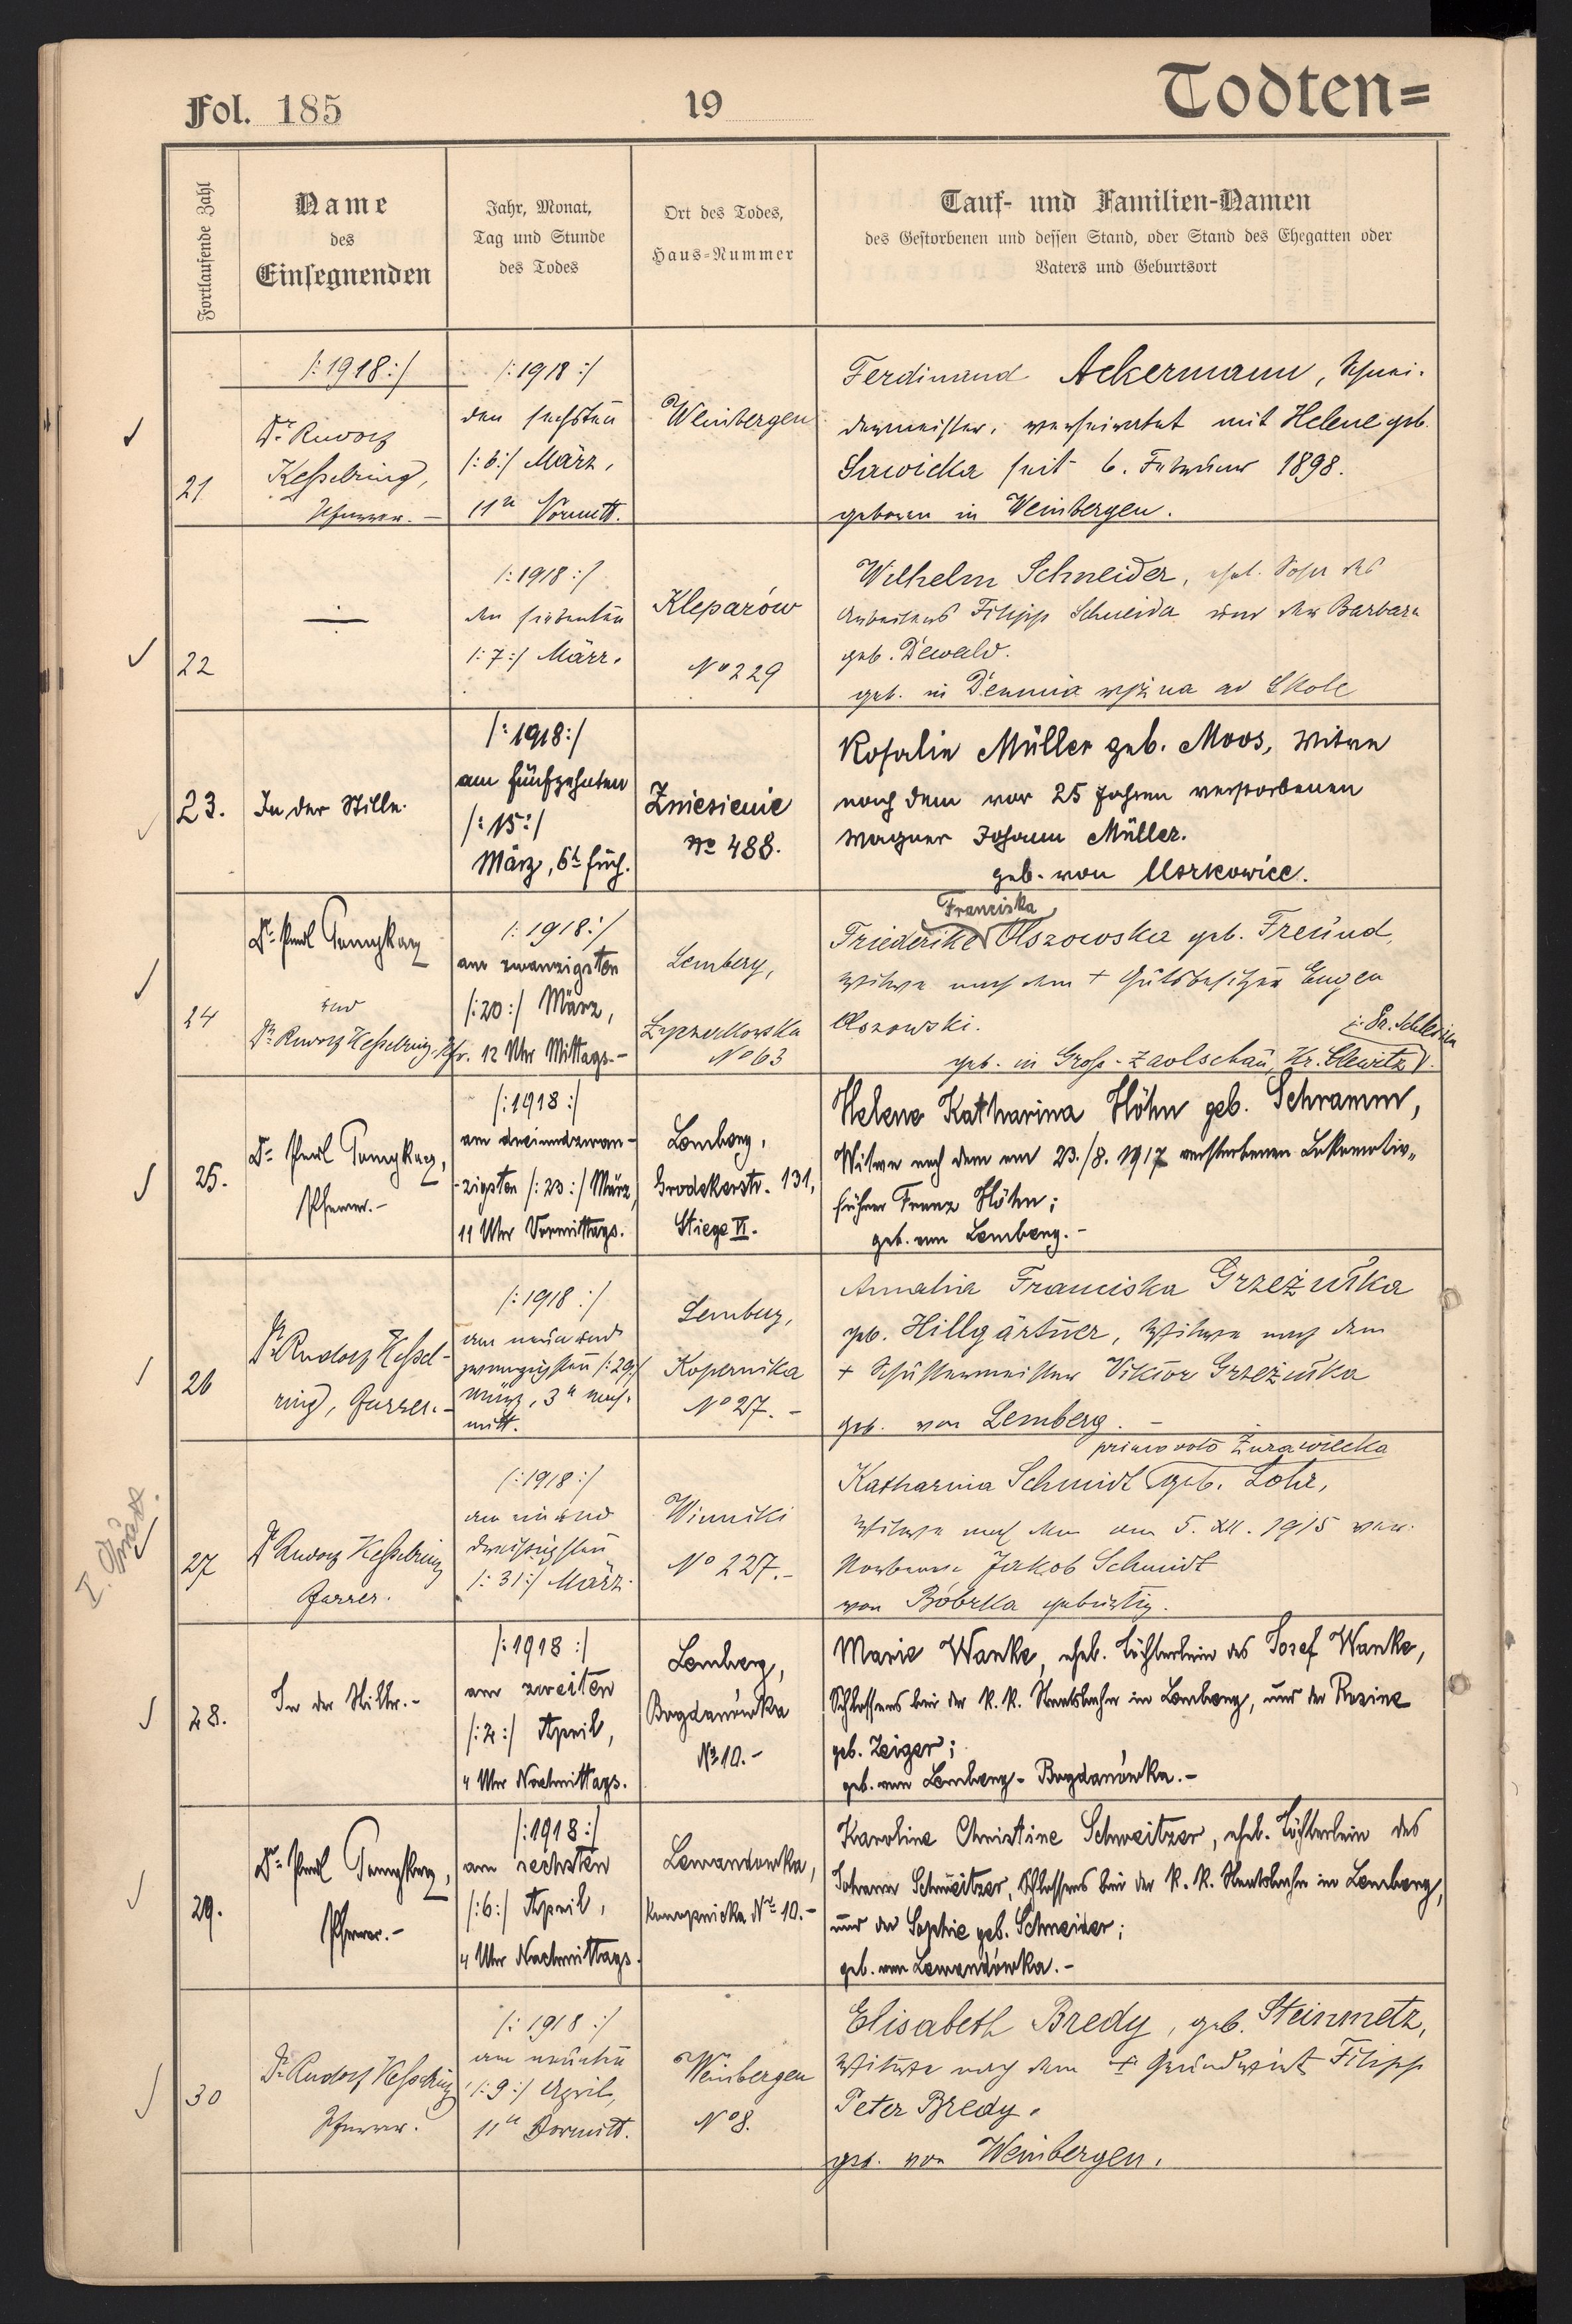 Fol. 185
19
Todten=
Fortlaufende Zahl
Name
des
Einsegnenden
Jahr, Monat,
Tag und Stunde
des Todes
Ort des Todes,
Haus-Nummer
Tauf- und Familien-Namen
des Gestorbenen und dessen Stand, oder Stand des Ehegatten oder
Vaters und Geburtsort
21
/:1918:/
Dr. Rudolf
Kesselring,
Pfarrer.–
/:1918:/
den sechsten
/:6:/ März,
11u Vormitt.
Weinbergen
Ferdinand Ackermann, Schnei-
dermeister, verheiratet mit Helene geb.
Sawicka seit 6. Februar 1898.
geboren in Weinbergen.
22
/:1918:/
den siebenten
/:7:/ März.
Kleparów
No 229
Wilhelm Schneider, ehel. Sohn des
Arbeiters Filipp Schneider und der Barbara
geb. Dewald.
geb. in wyżna ad Skole
23.
In der Stille.
/:1918:/
am fünfzehnten
/:15:/
März, 6h früh.
Zniesienie
No 488.
Rosalie Müller geb. Moos, Witwe
nach dem vor 25 Jahren verstorbenen
Wagner Johann Müller.
geb. von Uszkowice.
24
Dr. Paul
und
Dr. Rudolf Kesselring, Pfr.
/:1918:/
am zwanzigsten
/:20:/ März,
12 Uhr Mittags.–
Lemberg,
Łyczakowska
No 63
Franziska
Friederike Olszowska geb. Freund,
Witwe nach dem + Gutsbesitzer Eugen
Olszowski.
i. Pr. Schlesien
geb. in Gross-Zaolschau, Kr.
25.
Dr. Paul
Pfarrer.–
/:1918:/
am dreiundzwan-
zigsten /:23:/ März,
11 Uhr Vormittags.
Lemberg,
Grodekerstr. 131,
Stiege VI.
Helene Katharina Höhn geb. Schramm,
Witwe nach dem am 23./8. 1917 verstorbenen Lokomotiv„
führer Franz Höhn;
geb. von Lemberg.–
26
Dr. Rudolf Kessel-
ring, Pfarrer.–
/:1918:/
am neunund
zwanzigsten /:29:/
März, 3u nach-
mitt.
Lemberg,
Kopernika
No 27.–
Amalia Franciska Grzeżułka
geb. Hillgärtner, Witwe nach dem
+ Schustermeister Viktor Grzeżułka
geb. von Lemberg.–
27
Dr. Rudolf Kesselring
Pfarrer.
/:1918:/
am einund
dreissigsten
/:31:/ März.
Winniki
No 227.–
primo voto Żurawiecka
Katharina Schmidt geb. Lohr,
Witwe nach dem am 5. XII. 1915 ver-
storbenen Jakob Schmidt
von Bóbrka gebürtig.
28.
In der Stille.–
/:1918:/
am zweiten
/:2:/ April,
4 Uhr Nachmittags.
Lemberg,
Bogdanówka
No 10.–
Marie Wanke, ehel. Töchterlein des Josef Wanke,
Schlossers bei der k. k. Staatsbahn in Lemberg, und der Rosine
geb. Zeiger;
geb. von Lemberg-Bogdanówka.–
29.
Dr. Paul
Pfarrer.–
/:1918:/
am sechsten
/:6:/ April,
4 Uhr Nachmittags.
Lewandowka,
Konopnicka No 10.–
Karoline Christine Schweitzer, ehel. Töchterlein des
Johann Schweitzer, Schlossers bei der k. k. Staatsbahn in Lemberg,
und der Sophie geb. Schneider;
geb. von Lewandówka.–
30
Dr. Rudolf Kesselring
Pfarrer.
/:1918:/
am neunten
/:9:/ April,
11u Vormitt.
Weinbergen
No 8.
Elisabeth Bredy, geb. Steinmetz,
Witwe nach dem + Grundwirt Filipp
Peter Bredy.
geb. von Weinbergen.